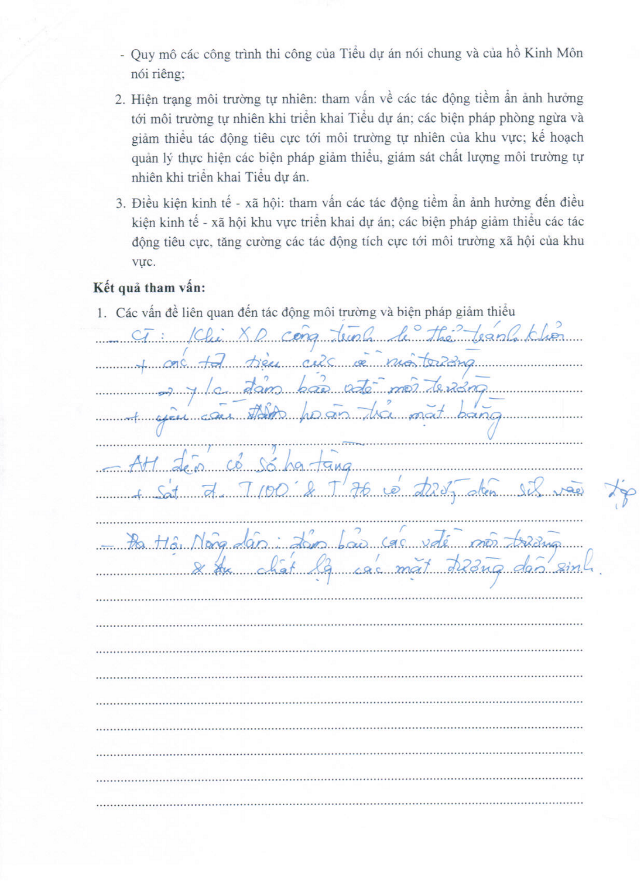 - Quy mô các công trình thi công của Tiểu dự án nói chung và của hồ Kinh Môn
nói riêng;
2. Hiện trạng môi trường tự nhiên: tham vấn về các tác động tiềm ẩn ảnh hưởng
tới môi trường tự nhiên khi triển khai Tiểu dự án; các biện pháp phòng ngừa và
giảm thiểu tác động tiêu cực tới môi trường tự nhiên của khu vực; kế hoạch
quản lý thực hiện các biện pháp giảm thiểu, giám sát chất lượng môi trường tự
nhiên khi triển khai Tiểu dự án.
3. Điều kiện kinh tế - xã hội: tham vấn các tác động tiềm ẩn ảnh hưởng đến điều
kiện kinh tế - xã hội khu vực triển khai dự án; các biện pháp giảm thiểu các tác
động tiêu cực, tăng cường các tác động tích cực tới môi trường xã hội của khu
vực.
Kết quả tham vấn:
1. Các vấn đề liên quan đến tác động môi trường và biện pháp giảm thiểu
- CT: Khi XD công trình thể tránh khỏi
+ các tđ tiêu cực về môi trường
→ y/c đảm bảo vđề môi trường
+ yêu cầu hoàn trả mặt bằng
- AH đến cơ sở hạ tầng
+ Sát T100 & T76 có đường dân sinh vào đập
- Hội Nông dân: đảm bảo các vđề môi trường
& chất lg các mặt đường dân sinh.